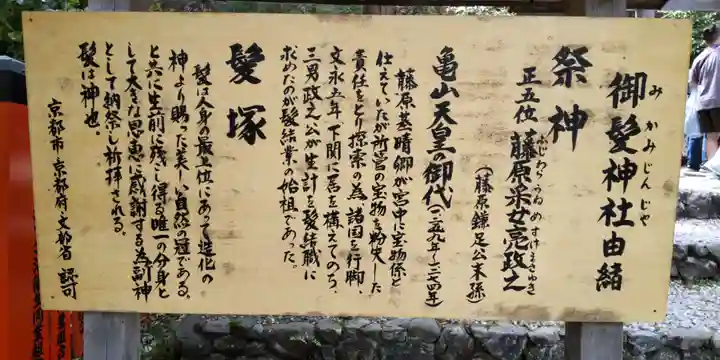 御髪神社由緒
みかみじんじゃ
祭神
正五位 藤原采女亮政之
ふじわらうねめすけまさゆき
(藤原鎌足公末孫)
亀山天皇の御代(一二五九年~七四年)
藤原基晴卿が宮中に宝物係と
仕えていたが所管の宝物を紛失した
責任をとり探索の為、諸国を行脚、
文永五年、下関に居を構えてのち、
三男政之公が生計を髪結職に
求めたのが髪結業の始祖であった。
髪塚
髪は人身の最上位にあって造化の
神より賜った美しい自然の冠である。
と共に生前に残し得る唯一の分身と
して大きな恩恵に感謝する為訓神
として納祭し祈拝される。
髪は神也。
京都市・京都府・文部省 認可